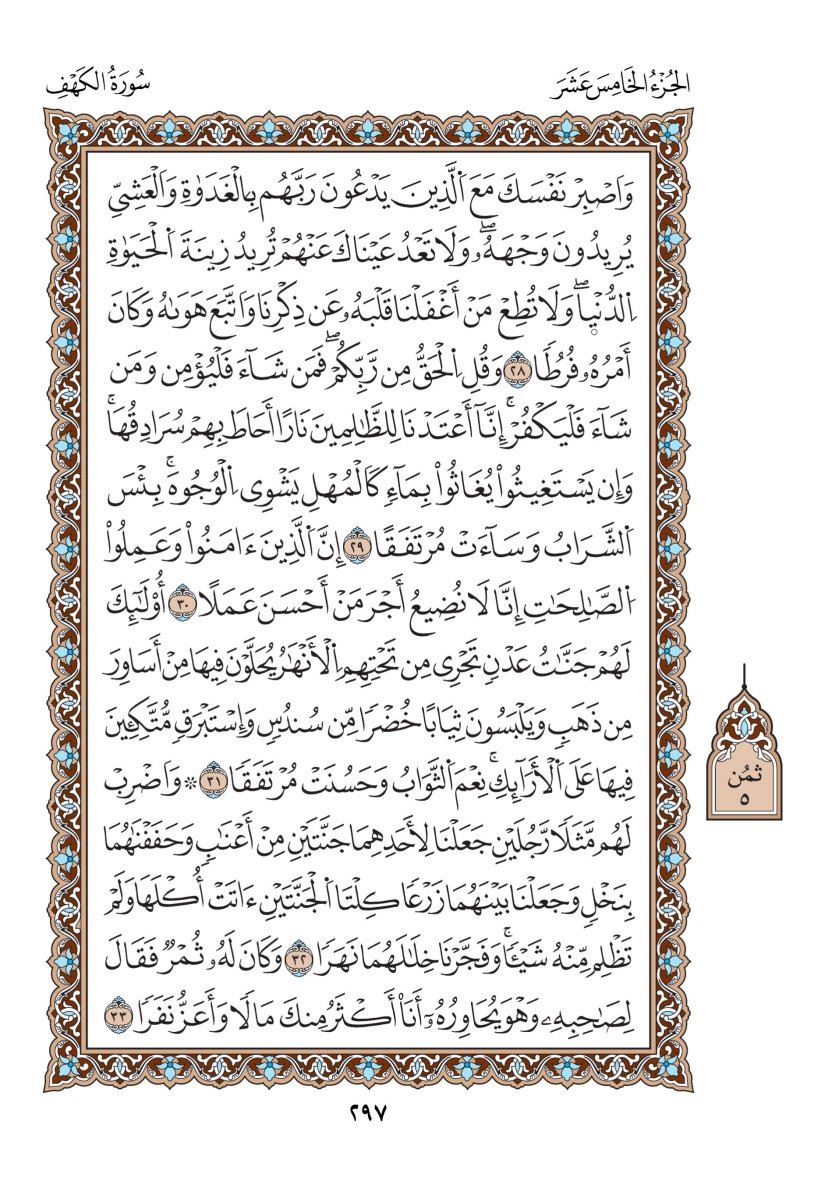 الجُزْءُ الخَامِسَ عَشَرَ
سُورَةُ الكَهْفِ
وَاَصْبِرْ نَفْسَكَ مَعَ اَلَّذِينَ يَدْعُونَ رَبَّهُم بِالْغَدَوٰةِ وَالْعَشِيِّ
يُرِيدُونَ وَجْهَهُۥۖ وَلَا تَعْدُ عَيْنَاكَ عَنْهُمْ تُرِيدُ زِينَةَ اَلْحَيَوٰةِ
اِلدُّنْيٜاۖ وَلَا تُطِعْ مَنْ أَغْفَلْنَا قَلْبَهُۥ عَن ذِكْرِنَا وَاتَّبَعَ هَوَىٰهُ وَكَانَ
أَمْرُهُۥ فُرُطًا ٢٨ وَقُلِ اِلْحَقُّ مِن رَّبِّكُمْۖ فَمَن شَآءَ فَلْيُؤْمِن وَمَن
شَآءَ فَلْيَكْفُرْۚ إِنَّآ أَعْتَدْنَا لِلظَّٰلِمِينَ نَارًا أَحَاطَ بِهِمْ سُرَادِقُهَاۚ
وَإِن يَسْتَغِيثُواْ يُغَاثُواْ بِمَآءٖ كَالْمُهْلِ يَشْوِي اِلْوُجُوهَۚ بِئْسَ
اَلشَّرَابُ وَسَآءَتْ مُرْتَفَقًا ٢٩ إِنَّ اَلَّذِينَ ءَامَنُواْ وَعَمِلُواْ
اُلصَّٰلِحَٰتِ إِنَّا لَا نُضِيعُ أَجْرَ مَنْ أَحْسَنَ عَمَلًا ٣٠ أُوْلَٰٓئِكَ
لَهُمْ جَنَّٰتُ عَدْنٖ تَجْرِي مِن تَحْتِهِمِ اِلْأَنْهَٰرُ يُحَلَّوْنَ فِيهَا مِنْ أَسَاوِرَ
مِن ذَهَبٖ وَيَلْبَسُونَ ثِيَابًا خُضْرًا مِّن سُندُسٖ وَإِسْتَبْرَقٖ مُّتَّكِـِٔينَ
فِيهَا عَلَى اَلْأَرَآئِكِۚ نِعْمَ اَلثَّوَابُ وَحَسُنَتْ مُرْتَفَقًا ٣١ ۞ وَاَضْرِبْ
لَهُم مَّثَلًا رَّجُلَيْنِ جَعَلْنَا لِأَحَدِهِمَا جَنَّتَيْنِ مِنْ أَعْنَٰبٖ وَحَفَفْنَٰهُمَا
بِنَخْلٖ وَجَعَلْنَا بَيْنَهُمَا زَرْعًا كِلْتَا اَلْجَنَّتَيْنِ ءَاتَتْ أُكْلَهَا وَلَمْ
تَظْلِم مِّنْهُ شَيْـًٔاۚ وَفَجَّرْنَا خِلَٰلَهُمَا نَهَرًا ٣٢ وَكَانَ لَهُۥ ثُمْرٌ فَقَالَ
لِصَٰحِبِهِۦ وَهْوَ يُحَاوِرُهُۥٓ أَنَا۠ أَكْثَرُ مِنكَ مَالًا وَأَعَزُّ نَفَرًا ٣٣
ثمُن
٥
٢٩٧